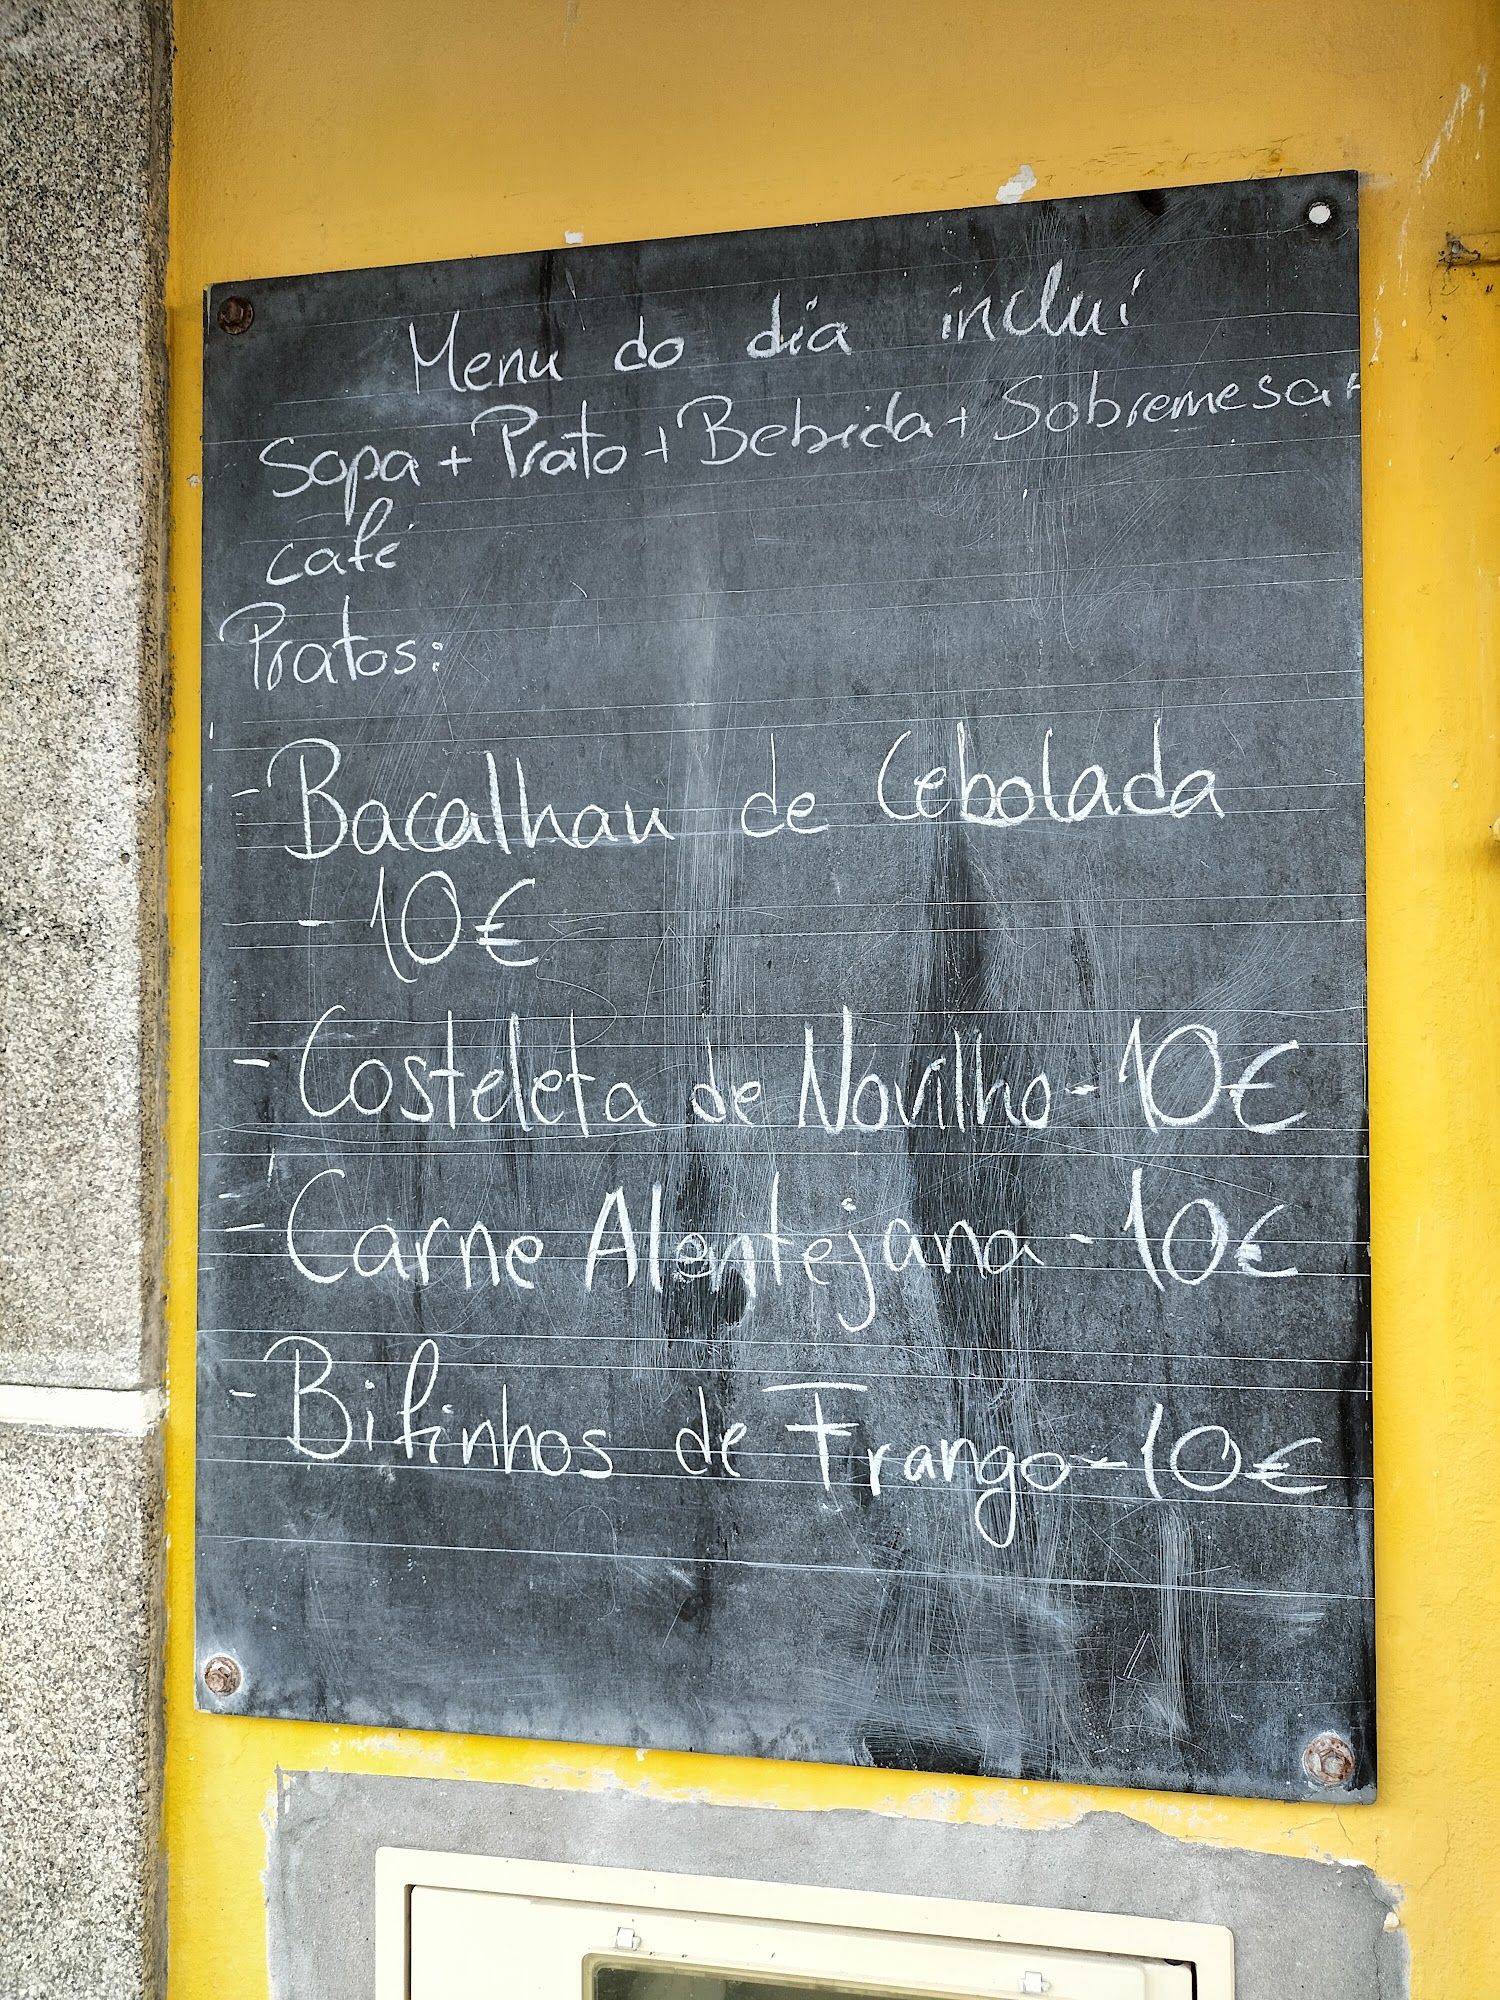 Menu do dia inclui
Sopa + Prato + Bebida + Sobremesa +
café
Pratos:
- Bacalhau de Cebolada
- 10€
- Costeleta de Novilho - 10€
- Carne Alentejana - 10€
- Bifinhos de Frango - 10€